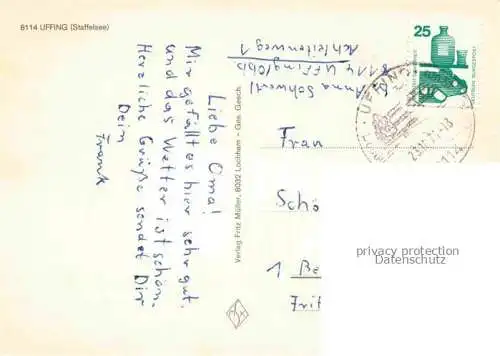 8114 UFFING (Staffelsee)
Liebe Oma!
Mir gefällt es hier sehr gut.
und das Wetter ist schön.
Herzliche Grüße sendet Dir
Dein
Frank
Verlag Fritz Müller, 8032 Lochham - Ges. Gesch.
Anna
8114 Uffing/Obb
Achleitenweg 1
25
Frau
Schö
1 Be
Frit
privacy protection
Datenschutz